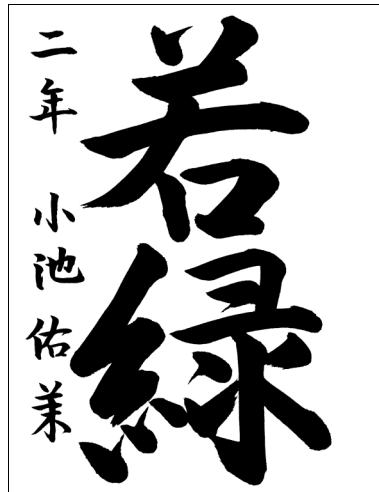 若緑
二年 小池佑茉